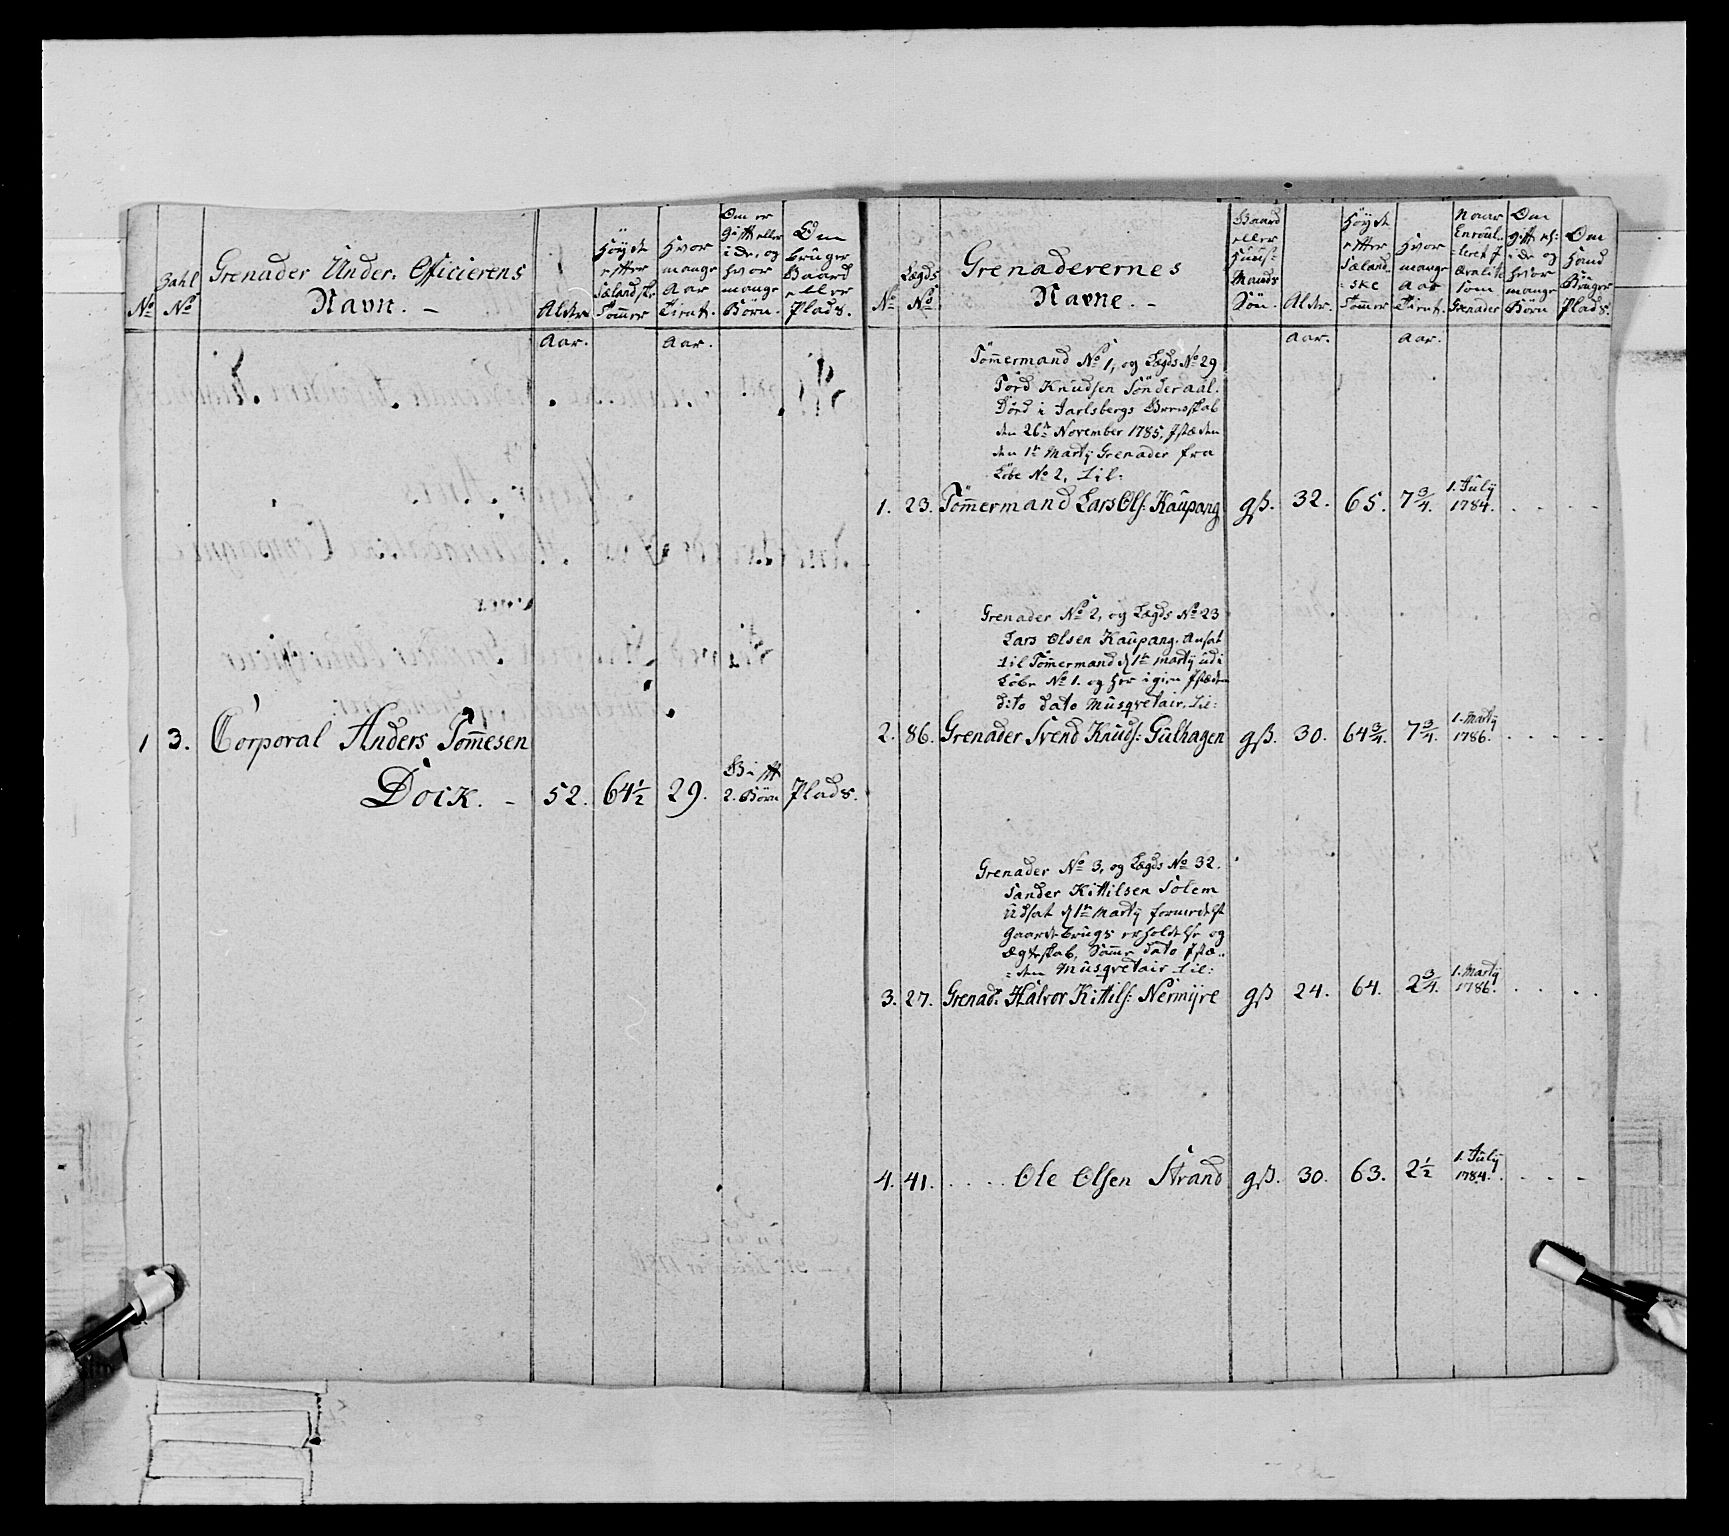 No
Zahl No
Grenader Under Officierens Navn. -
Alder
Høyde efter Siælandske Tommer
Hvor mange Aar Tient.
Om er Gift eller ide, og hvor mange Børn.
Om bruger Gaard eller Plads.
Aar. Aar.
1 3. Corporal Anders Tommesen
Dock. - 52. 64½ 29. Gift 2. Børn Plads.
No
Lægds No
Grenaderernes Navne. -
Gaard eller Huus-Mands Søn.
Alder.
Høyde efter Siælandske Tommer
Hvor mange Aar Tient.
Naar Enroulleret som Grenader
Om gift og hvor mange Børn
Om Hand Bruger Plads.
Aar. Aar.
Tömmermand No 1, og Lægds No 29
Tord Knudsen Sönderaal.
Död i Jarlsbergs Grevskab
den 26de November 1785, Istæden
den 1te Marty Grenader fra
Löbe No 2, til:
1. 23. Tömmermand Lars Ols: Kaupang gß. 32. 65. 7¾. 1. July 1784. . . . -
Grenader No 2, og Lægds No 23
Lars Olsen Kaupang, Ansat
til Tömermand d 1te Marty udi
Löbe No 1. og her igien Istæden
dito dato Musqvetair, til:
2. 86. Grenader Svend Knuds: Gulhagen gß. 30. 64¾. 7¾. 1. Marty 1786. . . . . .
Grenader No 3, og Lægds No 32.
Sander Kittilsen Solem
Udsat d 1te Marty formedelst
Gaardebrugs erholdelse og
Ægteskab, Samme dato Istæ-
-den Musqvetair til:
3. 27. Grenad: Halvor Kittils: Nermyre gß 24. 64. 2¾. 1. Marty 1786. . . . .
4. 41. . . . . Ole Olsen Strand gß. 30. 63. 2½ 1. July 1784. . . -